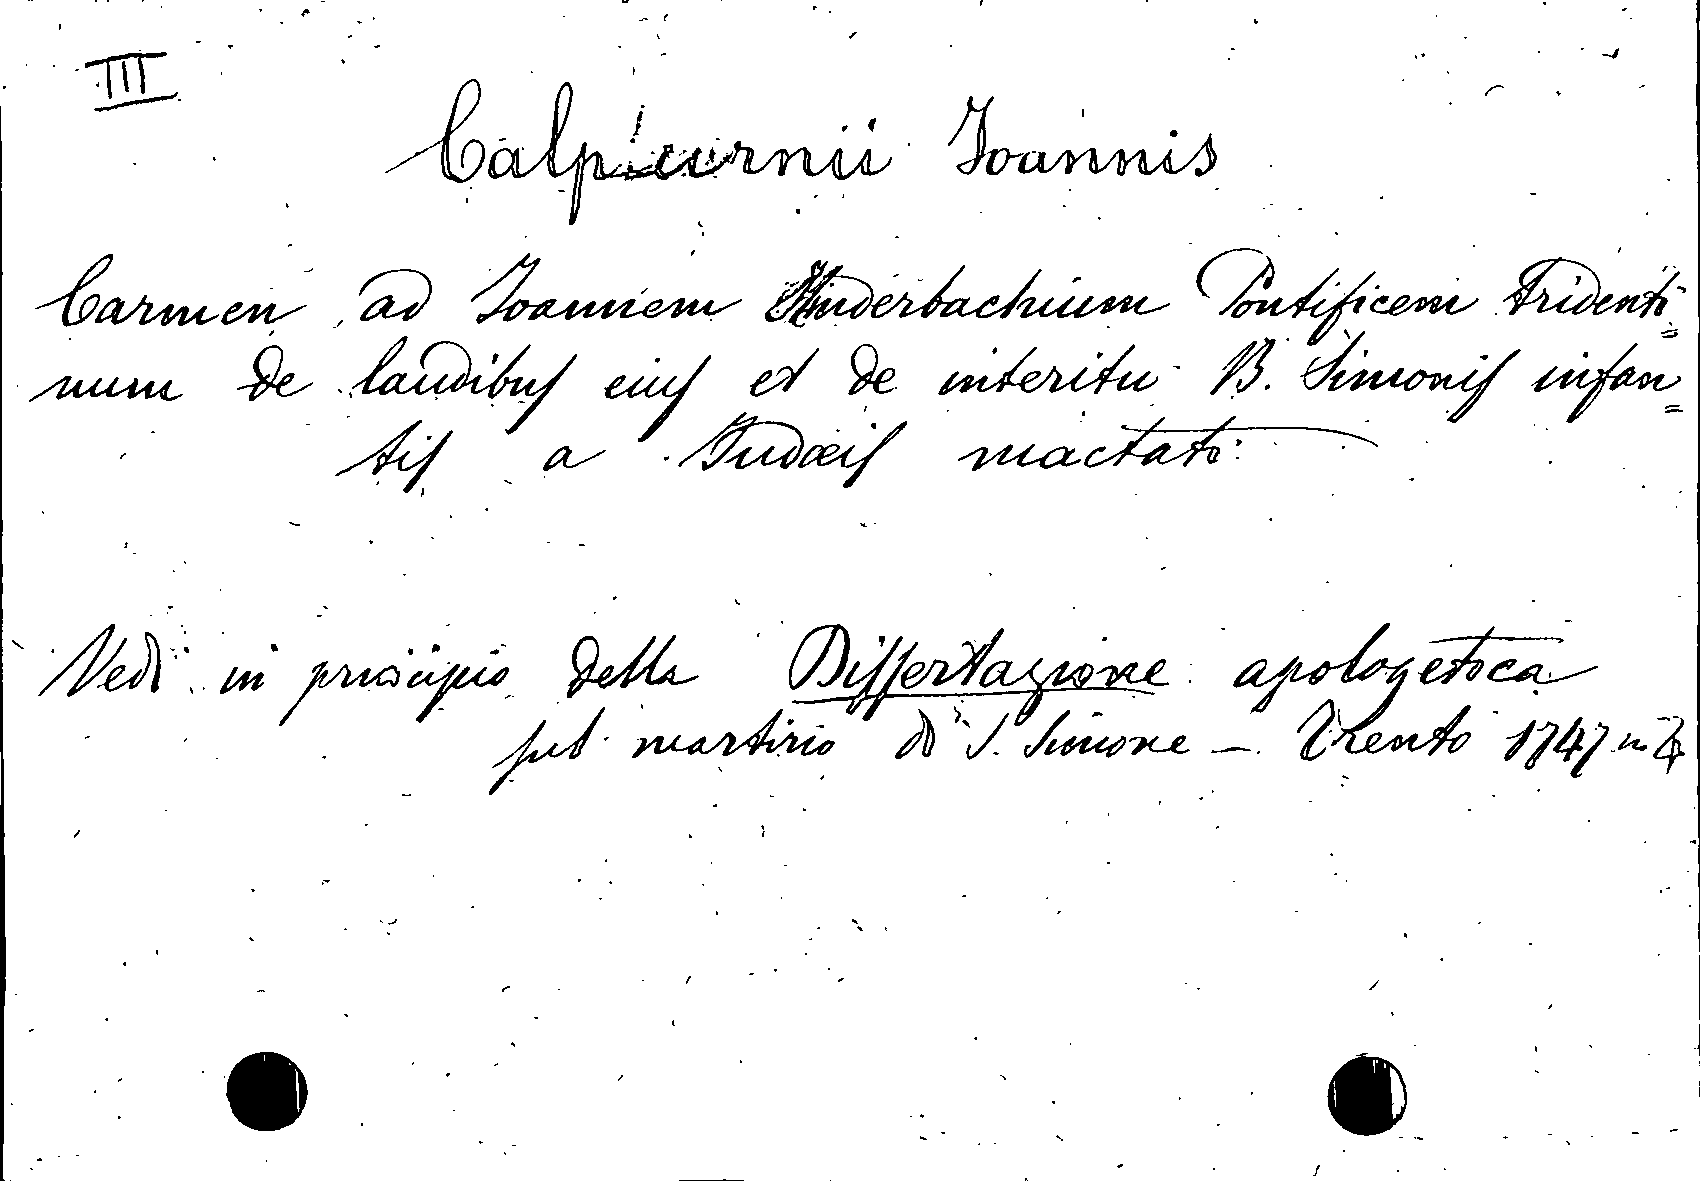 III
Calpurnii Joannis
Carmen ad Joannem Hinderbachium Pontificem Tridenti=
num de laudibus eius et de interitu B. Simonis infan=
tis a Judæis mactati
Vedi in principio della Dissertazione apologetica
sul martirio di S. Simone – Trento 1747 in 4